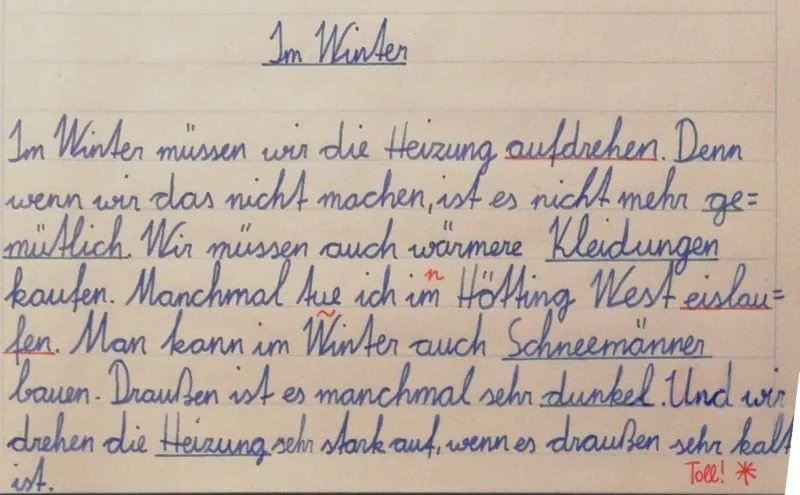 Im Winter
Im Winter müssen wir die Heizung aufdrehen. Denn
wenn wir das nicht machen, ist es nicht mehr ge=
mütlich. Wir müssen auch wärmere Kleidungen
kaufen. Manchmal tue ich im Hötting West eislau=
n
fen. Man kann im Winter auch Schneemänner
bauen. Draußen ist es manchmal sehr dunkel. Und wir
drehen die Heizung sehr stark auf, wenn es draußen sehr kalt
ist.
Toll! *